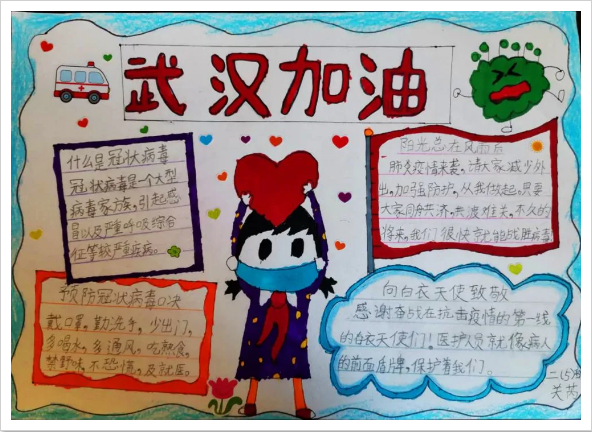 武汉加油
什么是冠状病毒
冠状病毒是一个大型
病毒家族,引起感
冒以及严重呼吸综合
征等较严重疾病。
阳光总在风雨后
肺炎疫情来袭,请大家减少外
出,加强防护,从我做起,只要
大家同舟共济,共渡难关,不久的
将来,我们很快就能战胜病毒
预防冠状病毒口决
戴口罩,勤洗手,少出门,
多喝水,多通风,吃熟食,
禁野味,不恐慌,及就医。
向白衣天使致敬
感谢奋战在抗击疫情的第一线
的白衣天使们!医护人员就像病人
的前面盾牌,保护着我们。
二(5)班
关芮